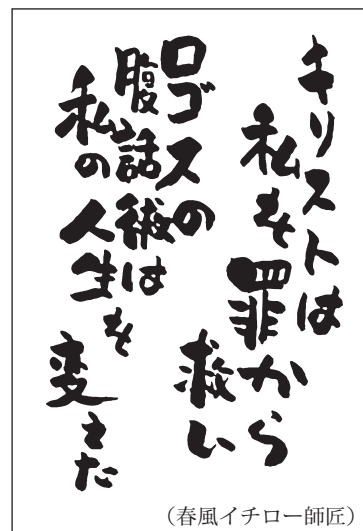 キリストは
私を罪から
救い
ロゴスの
腹話術は
私の人生を
変えた
（春風イチロー師匠）